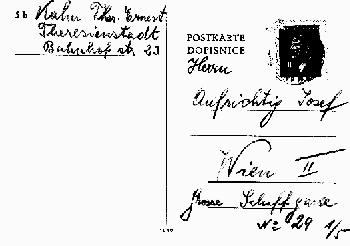 5b Kahn Thr. Ernest
Theresienstadt
Bahnhof str. 23
POSTKARTE
DOPISNICE
Herrn
Aufrichtig Josef
Wien II
Grosse Schiffgasse
No 29 1/5